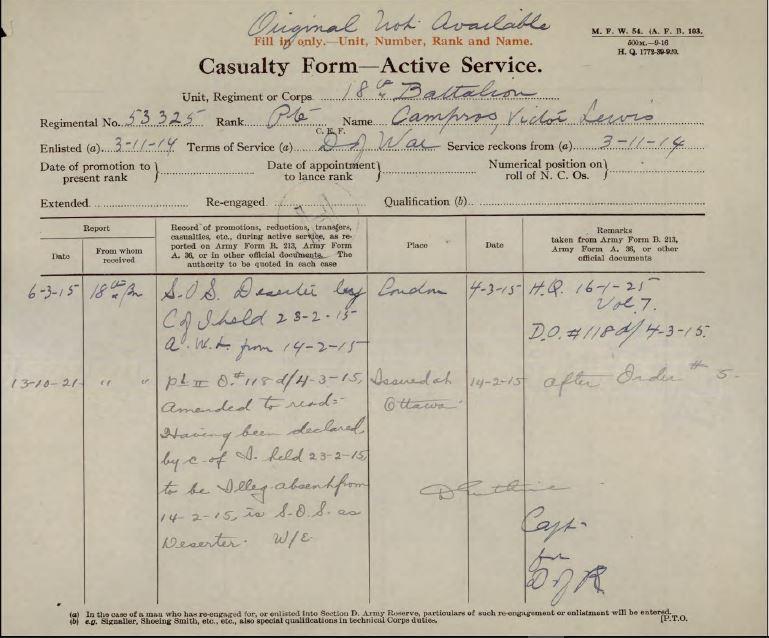 Original Not Available
Fill in only.—Unit, Number, Rank and Name.
M. F. W. 54. (A. F. B. 103.
500M.—9-16
H. Q. 1772-39-920.
Casualty Form—Active Service.
Unit, Regiment or Corps 18th Battalion
Regimental No. 53325 Rank Pte Name Campros, Victor Lewis
C. E. F.
Enlisted (a) 3-11-14 Terms of Service (a) D of War Service reckons from (a) 3-11-14
Date of promotion to present rank } Date of appointment to lance rank } Numerical position on roll of N. C. Os. }
Extended Re-engaged Qualification (b)
Report
Date
From whom received
Record of promotions, reductions, transfers, casualties, etc., during active service, as reported on Army Form B. 213, Army Form A. 36, or in other official documents. The authority to be quoted in each case
Place
Date
Remarks
taken from Army Form B. 213, Army Form A. 36, or other official documents
6-3-15 18th Bn S.O.S. Deserter by London 4-3-15 H.Q. 16-1-25
C of I held 23-2-15 Vol 7.
A.W.L. from 14-2-15 D.O. #118 d/4-3-15.
13-10-21 " " Pt II O. #118 d/4-3-15, Issued at 14-2-15 after Order # 5.
Amended to read= Ottawa
Having been declared
by C. of I. held 23-2-15,
to be Illeg absent from
14-2-15, is S.O.S. as
Deserter. W/E
Capt-
for
D of R
(a) In the case of a man who has re-engaged for, or enlisted into Section D. Army Reserve, particulars of such re-engagement or enlistment will be entered.
(b) e.g. Signaller, Shoeing Smith, etc., etc., also special qualifications in technical Corps duties. [P.T.O.